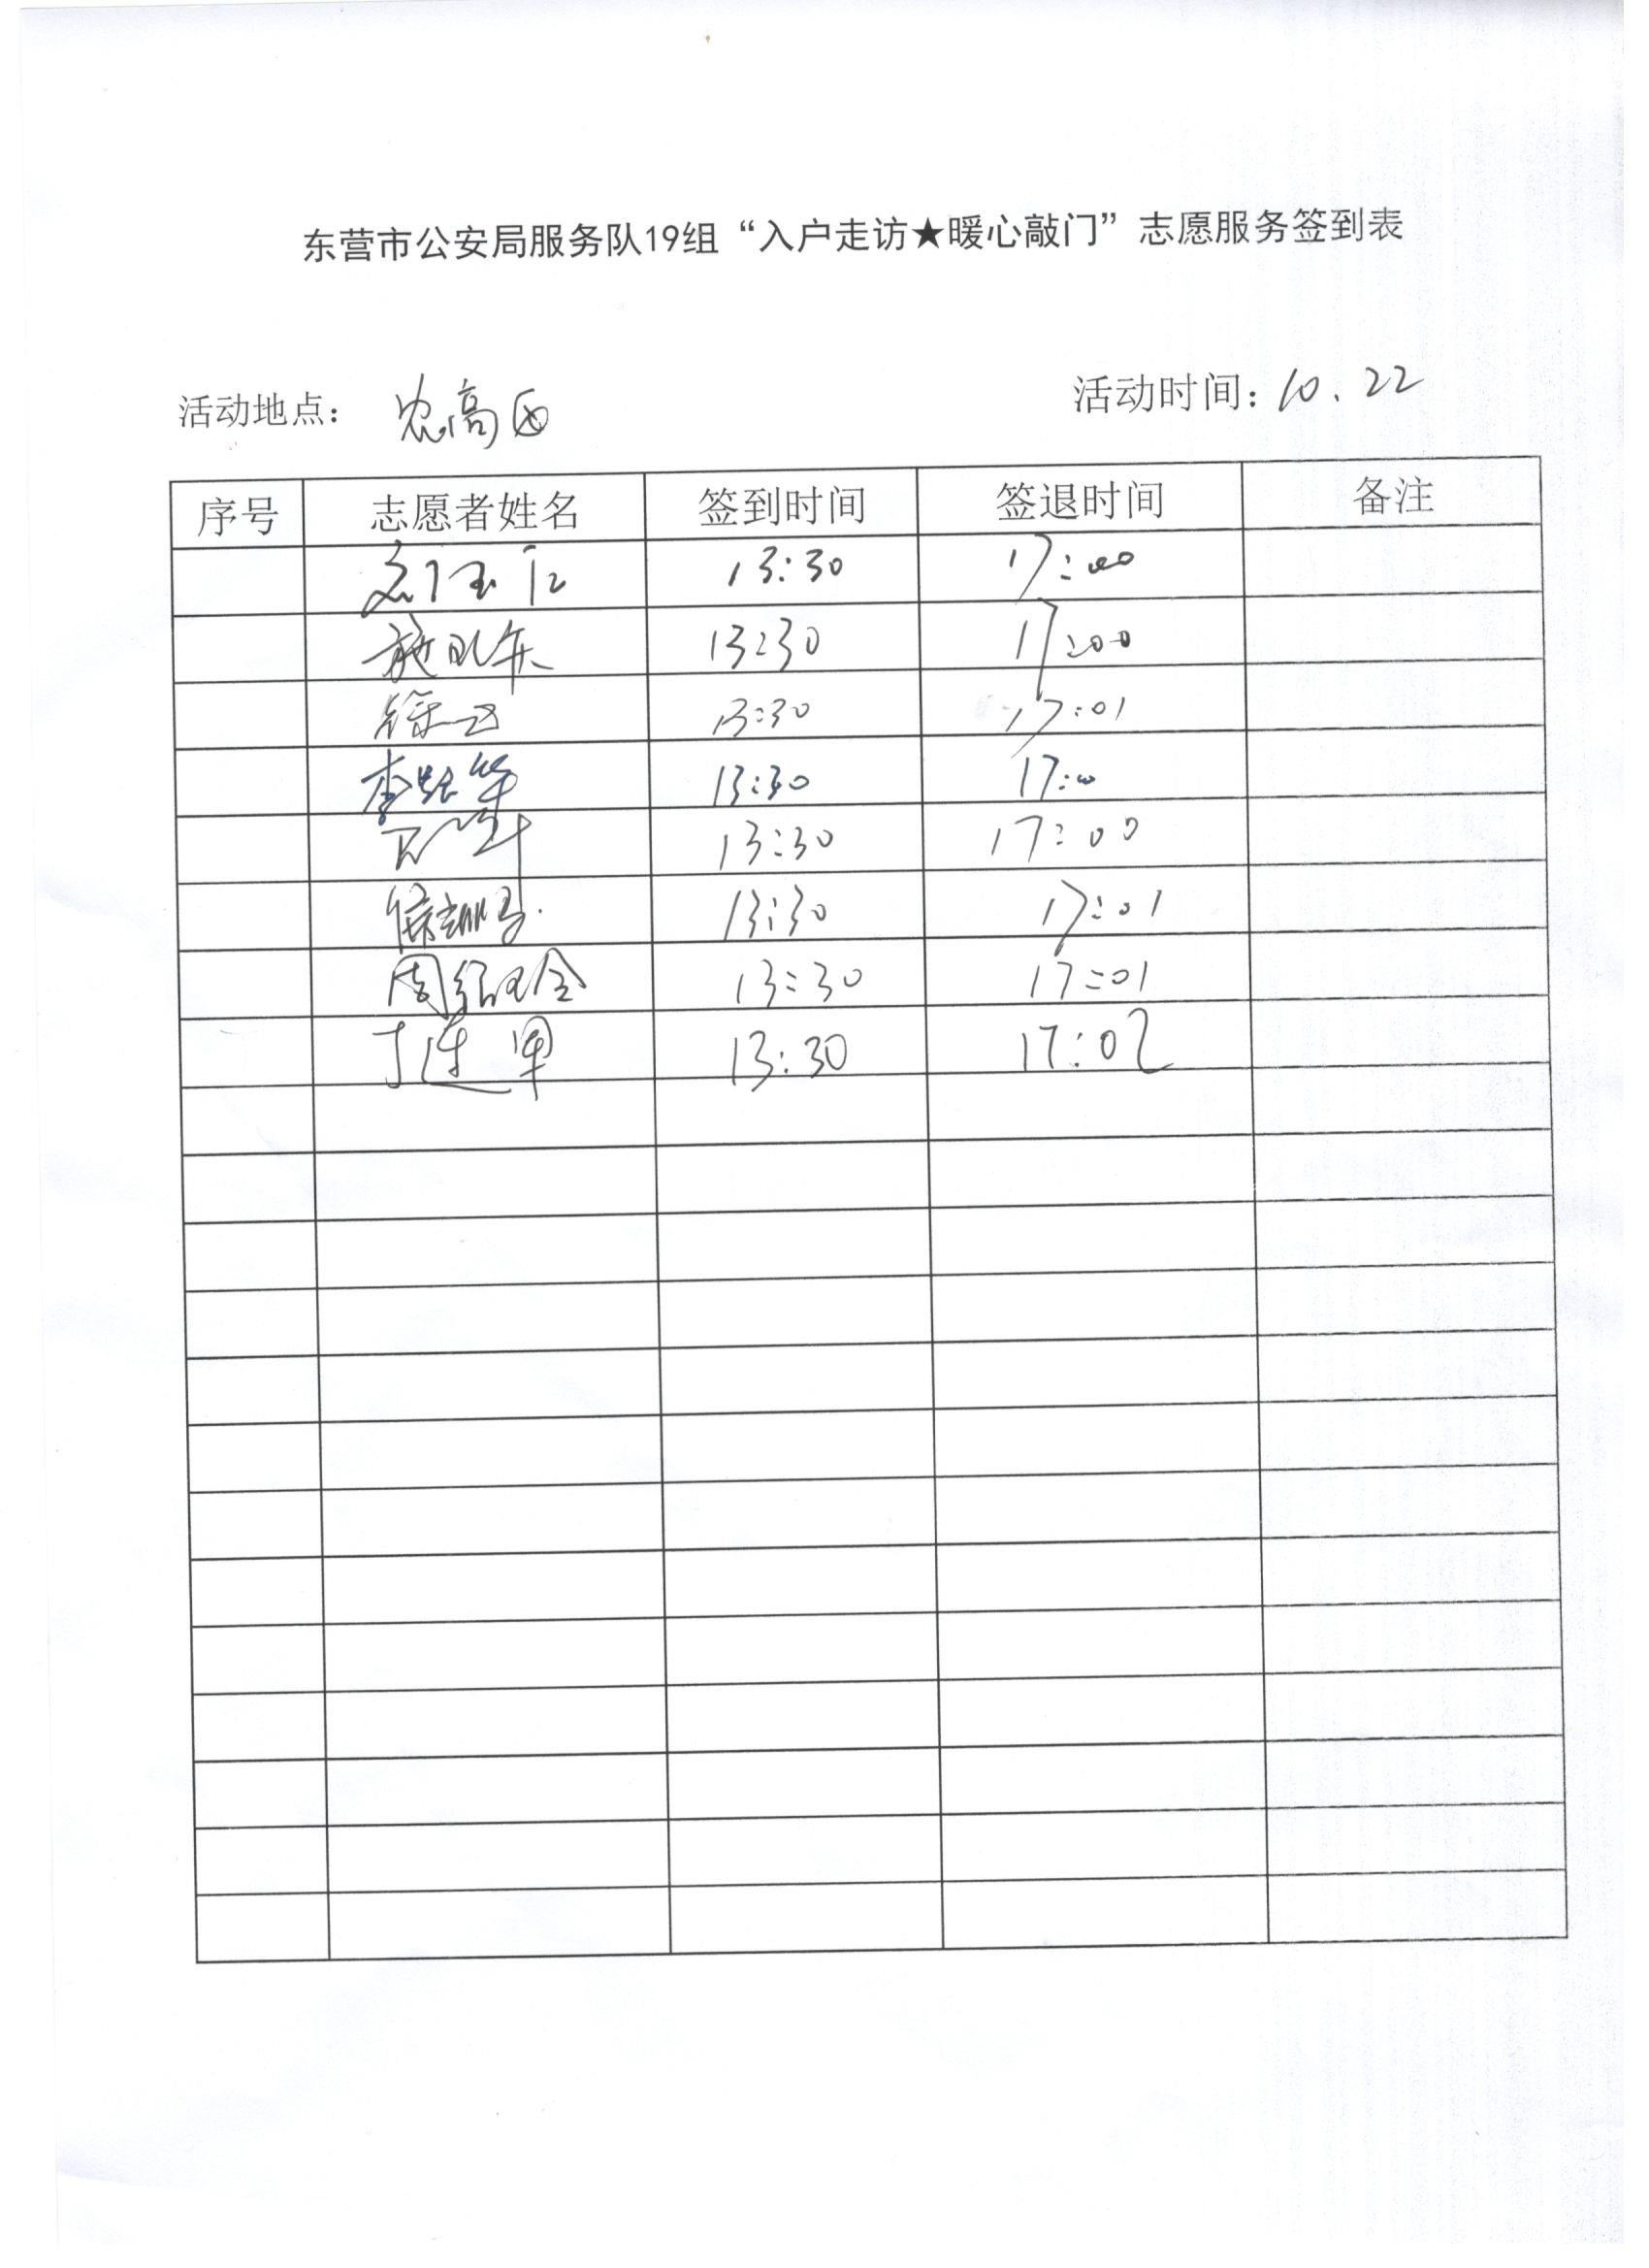 东营市公安局服务队19组“入户走访★暖心敲门”志愿服务签到表
活动地点： 农高区 活动时间：10.22
序号 志愿者姓名 签到时间 签退时间 备注
13:30 17:00
13:30 17:00
徐 13:30 17:01
李 13:30 17:00
13:30 17:00
侯 13:30 17:01
周绍全 13:30 17:01
丁连军 13:30 17:02